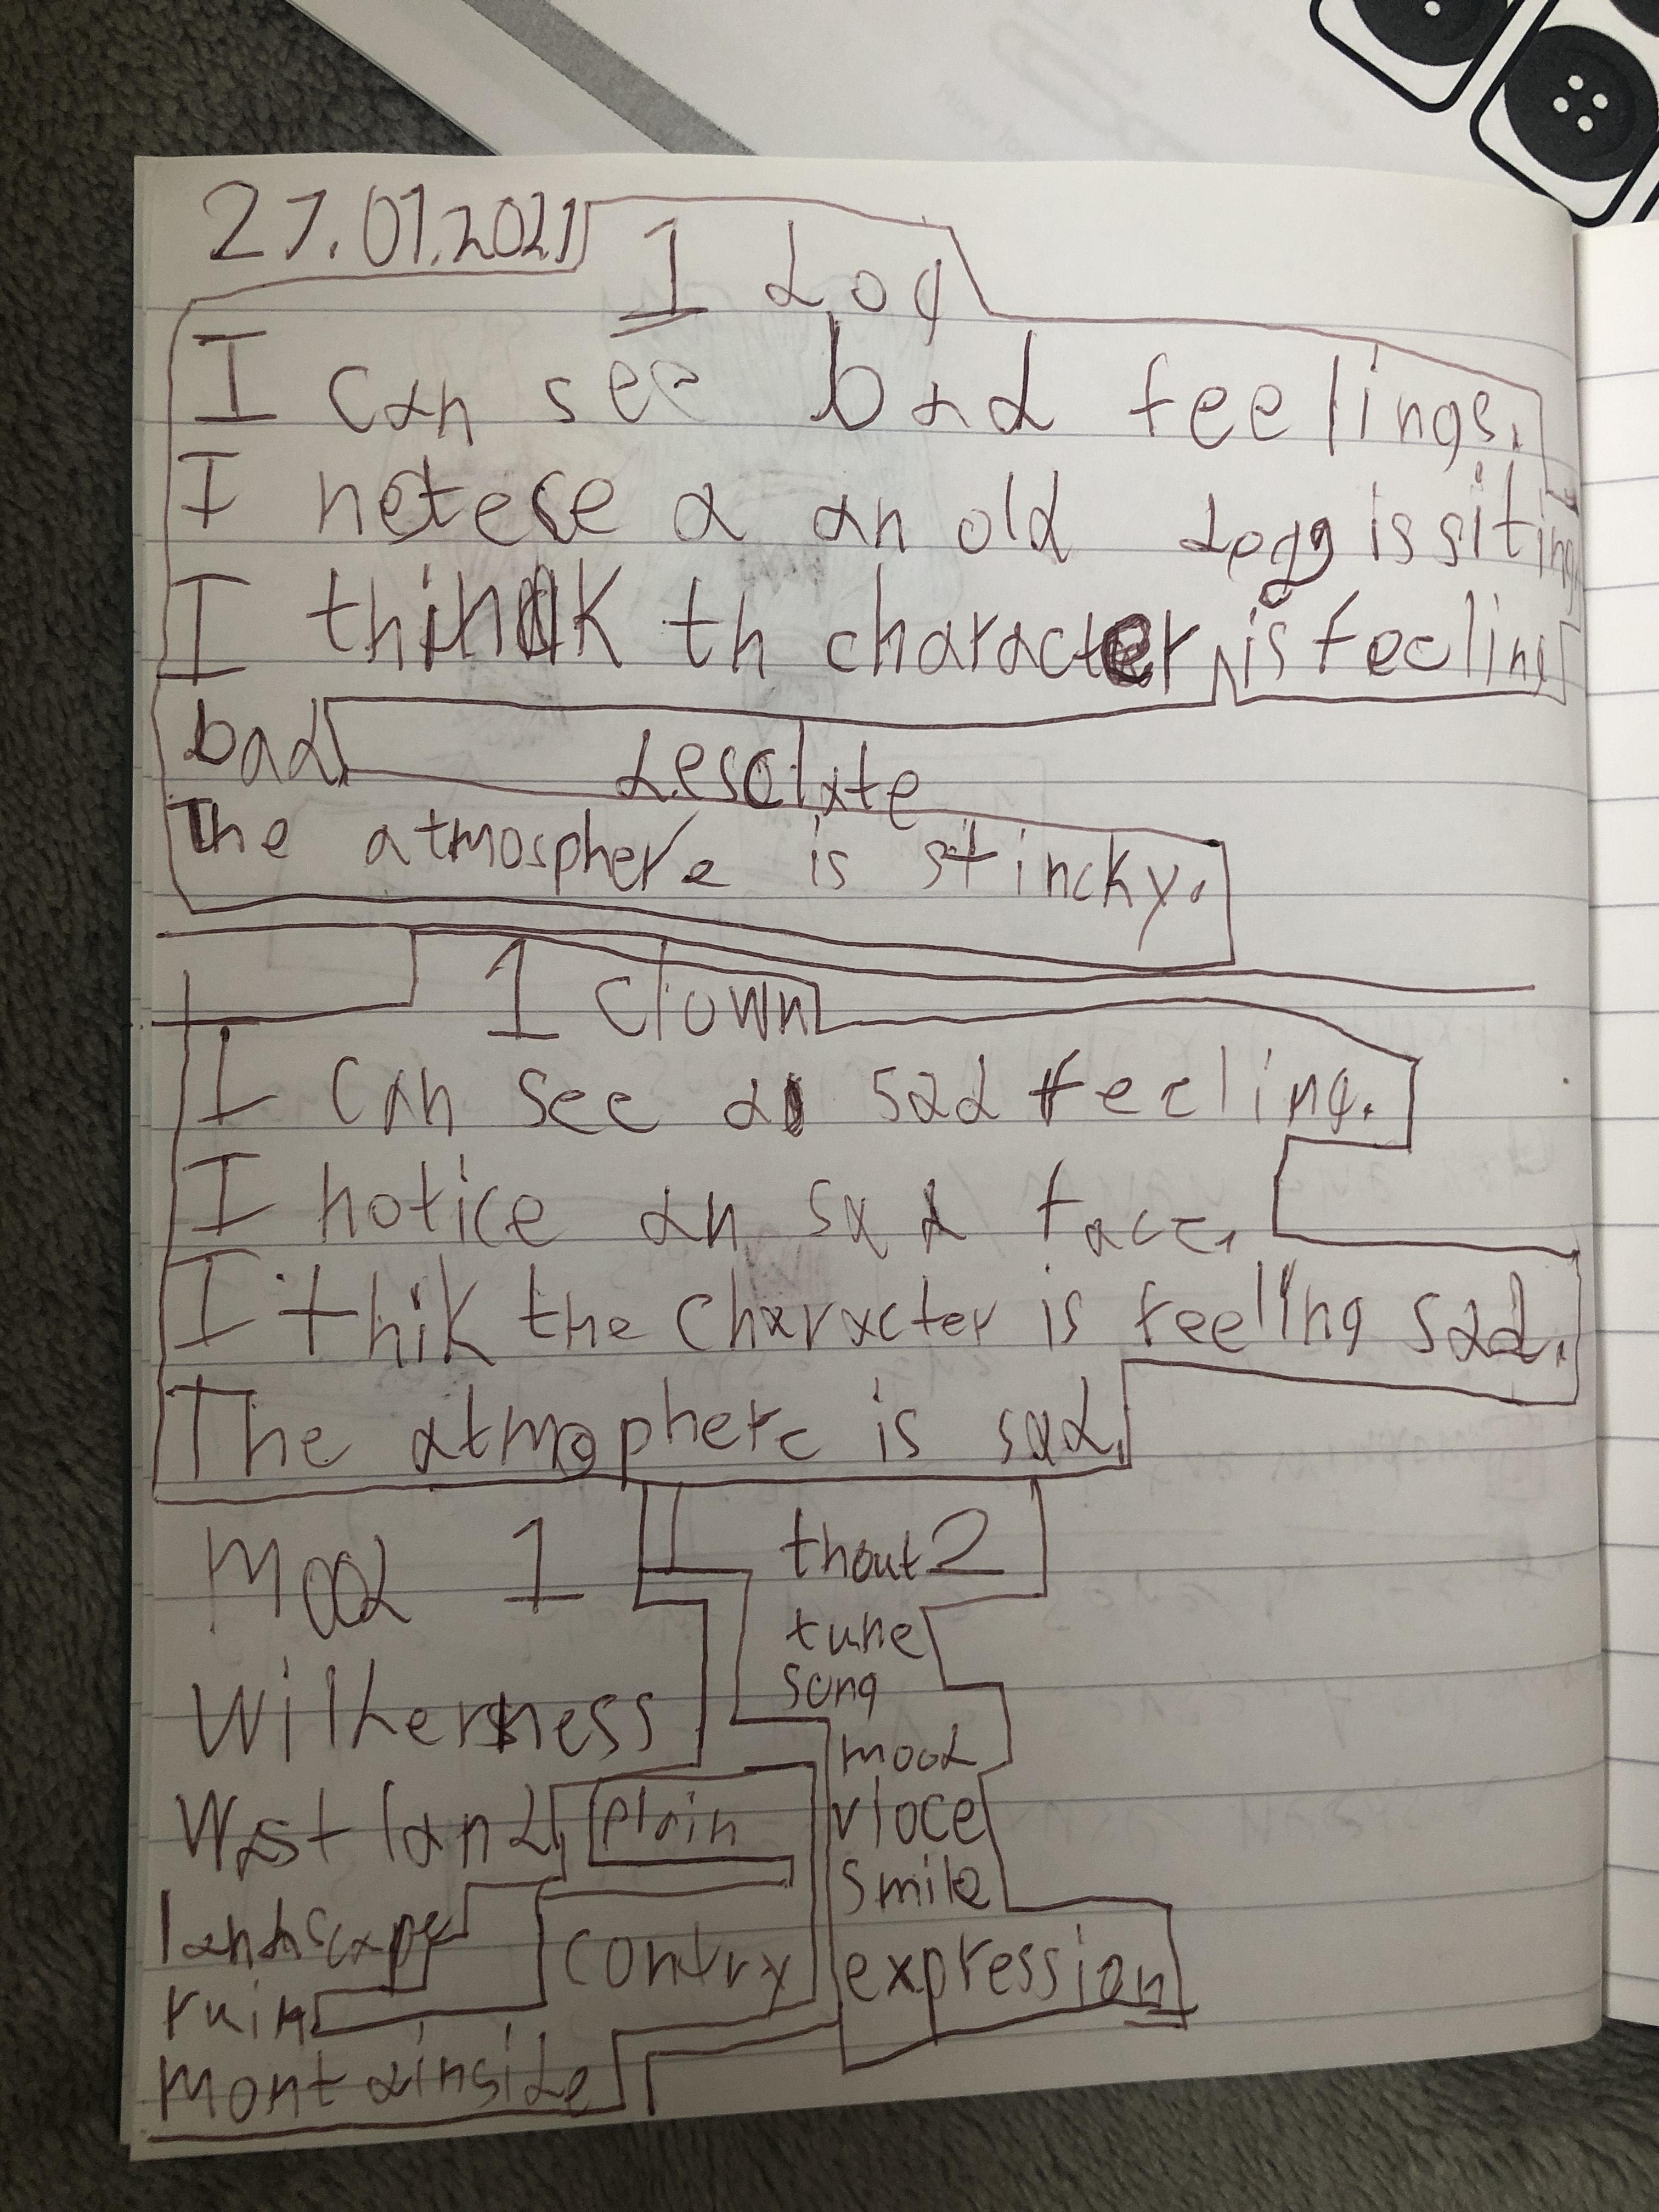 27.01.2021
1 dog
I can see bad feelings.
I netese a an old dogg is siting
I think th character is feeling
bad.
desolate
The atmosphere is stincky.
1 clown
I can see a sad feeling.
I notice an sad face.
I thik the character is feeling sad.
The atmophere is sad.
Mood 1
Wilherness
Wastland
plain
landscape
contry
ruin
Montainside
thout 2
tune
song
mood
vioce
smile
expression